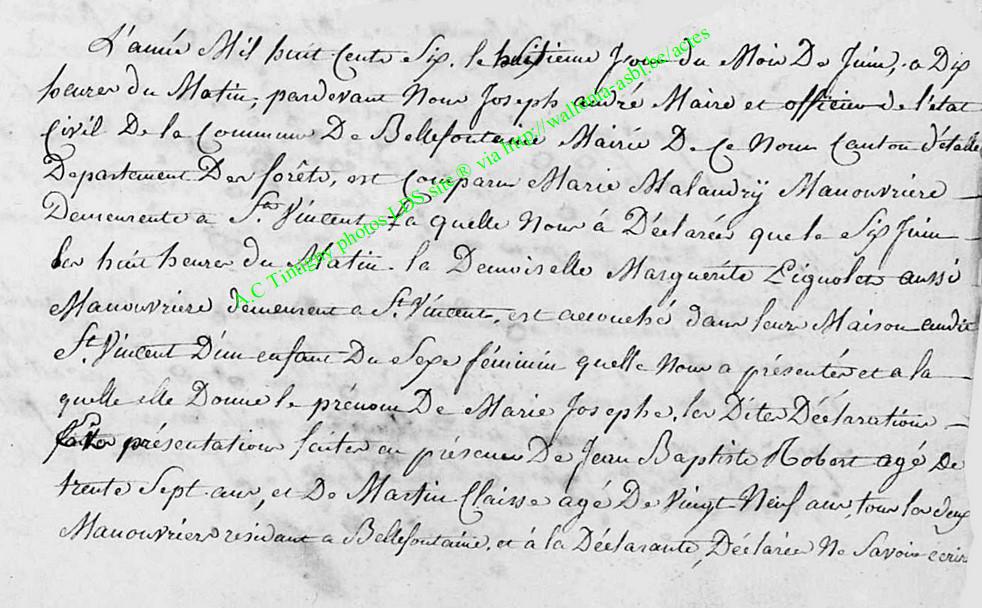 L'année Mil huit Cents Six. le huitieme Jour du Mois De Juin, a Dix
heures du Matin, pardevant Nous Joseph andré Maire et officier de l'état
Civil De la Commune De Bellefontaine Mairie De Ce Nom Canton d'étalle
Departement Des forêts, est Comparue Marie Malandrÿ Manouvriere
Demeurente a St. Vincent La quelle Nous à Déclarée que le Six Juin
les huit heures du Matin la Demoiselle Marguérite Pignolet aussi
Manouvriere demeurent a St. Vincent, est accouché dans leur Maison audit
St. Vincent D'un enfant Du Sexe féminin quelle Nous a présentée et a la
quelle elle Donne le prénom De Marie Josephe, les Dites Déclaration
présentation faites en présence De Jean Baptiste Robert agé De
trente Sept ans, et De Martin Claisse agé De Vingt Neuf ans, tous les deux
Manouvriers résidant a Bellefontaine, et à la Déclarante, Déclarée Ne Savoir écrire
A.C Tintigny photos LDS site® via http://wallonia-asbl.be/actes